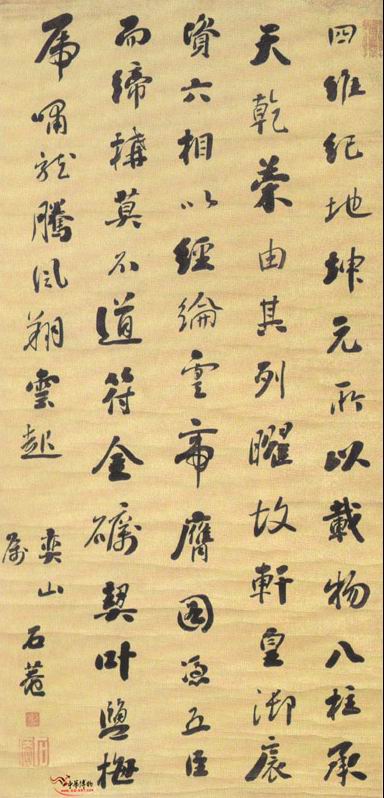 四維紀地坤元所以載物八柱承
天乾象由其列曜故軒皇御扆
資六相以經綸虞帝膺圖憑五臣
而締構莫不道符金礪契叶鹽梅
虎嘯龍騰風翔雲起
奕山
屬
石菴
中華博物